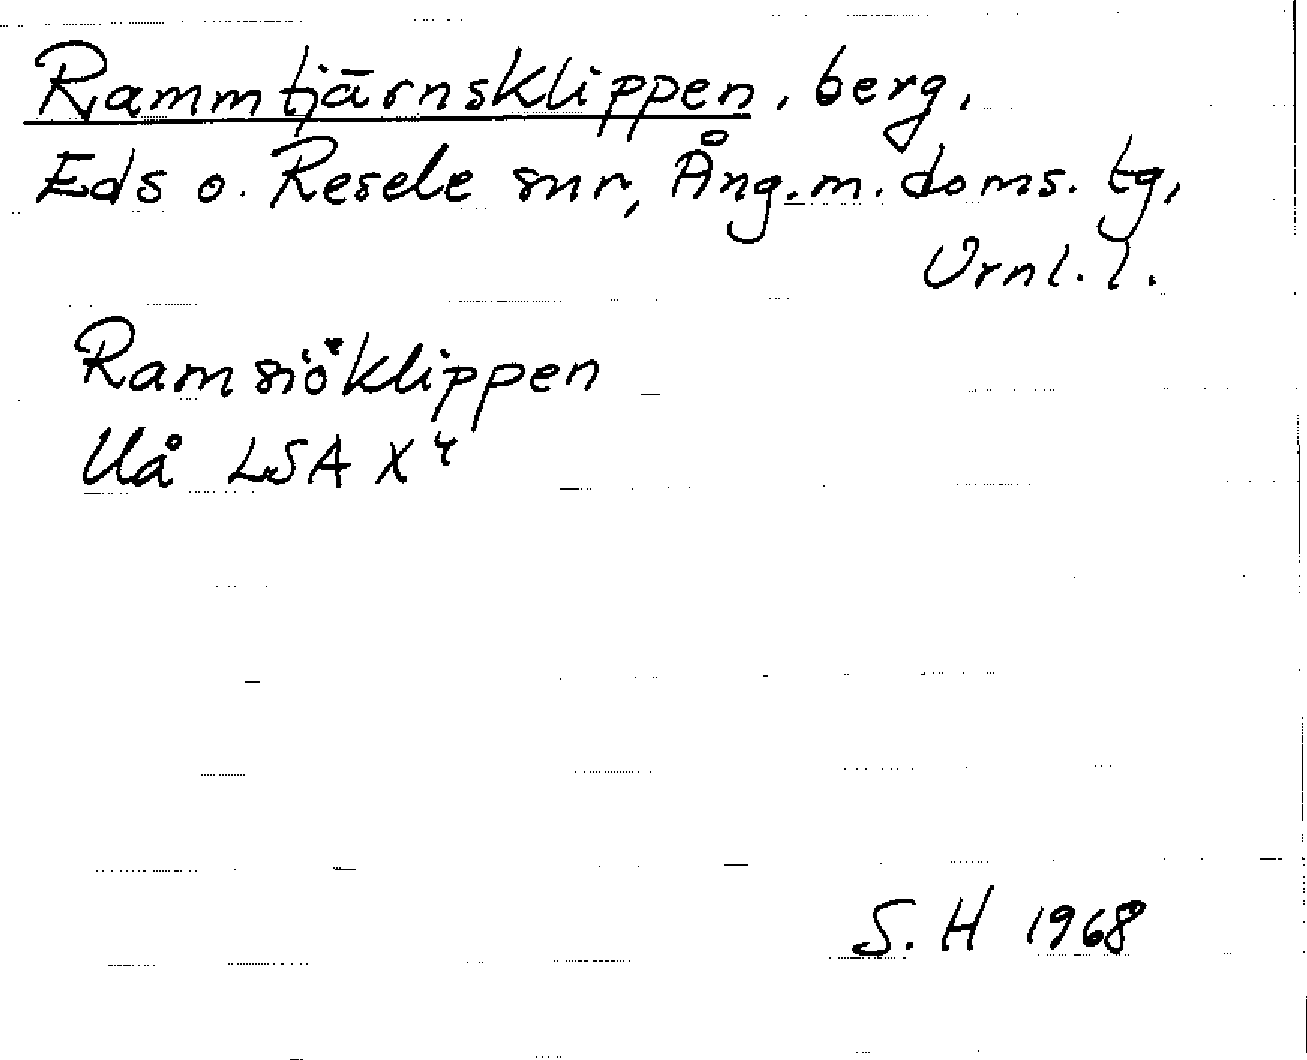 Rammtjärnsklippen, berg,
Eds o. Resele snr, Ång.m. doms. tg,
Vrnl. l.
Ramsiöklippen
Uå LSA X 4
S. H 1968